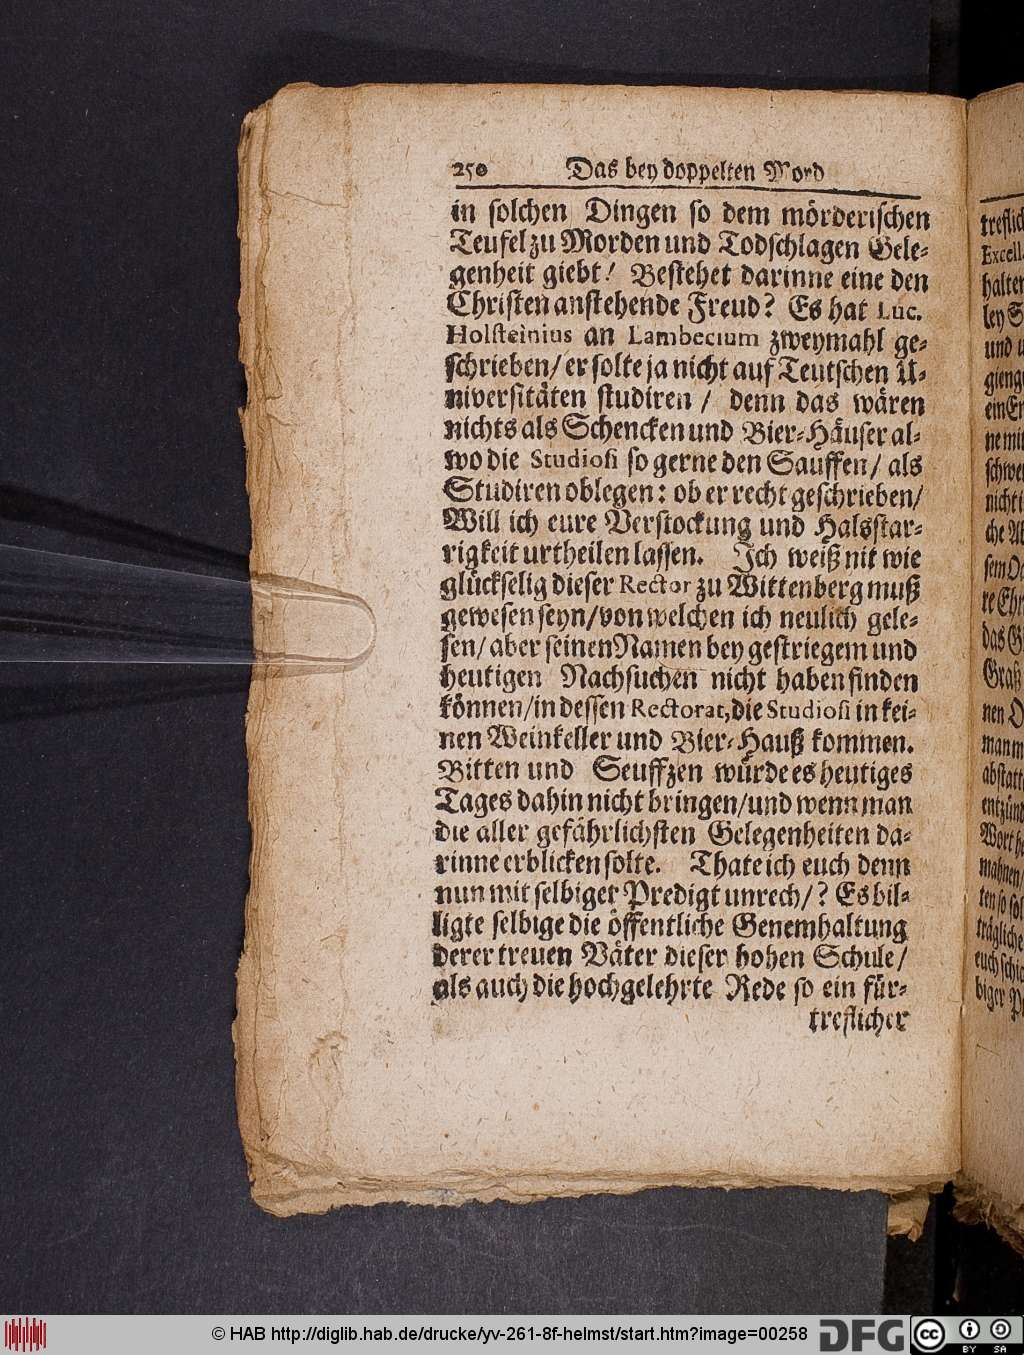 250 Das bey doppelten Mord
in solchen Dingen so dem mörderischen
Teufel zu Morden und Todschlagen Gele-
genheit giebt! Bestehet darinne eine den
Christen anstehende Freud? Es hat Luc.
Holsteinius an Lambecium zweymahl ge-
schrieben/ er solte ja nicht auf Teutschen U-
niversitäten studiren / denn das wären
nichts als Schencken und Bier-Häuser al-
wo die Studiosi so gerne den Sauffen/ als
Studiren oblegen: ob er recht geschrieben/
Will ich eure Verstockung und Halsstar-
rigkeit urtheilen lassen. Ich weiß nit wie
glückselig dieser Rector zu Wittenberg muß
gewesen seyn/ von welchen ich neulich gele-
sen/ aber seinen Namen bey gestriegem und
heutigen Nachsuchen nicht haben finden
können/ in dessen Rectorat, die Studiosi in kei-
nen Weinkeller und Bier-Hauß kommen.
Bitten und Seuffzen würde es heutiges
Tages dahin nicht bringen/ und wenn man
die aller gefährlichsten Gelegenheiten da-
rinne erblicken solte. Thate ich euch denn
nun mit selbiger Predigt unrech/? Es bil-
ligte selbige die öffentliche Genemhaltung
derer treuen Väter dieser hohen Schule/
als auch die hochgelehrte Rede so ein für-
treflicher
treflich
Excell
halten
ley S
und u
gieng
ein Er
ne mit
schwer
nicht i
che Al
sem O
re Ehr
das G
Graß
nen O
man m
abstatt
entzünd
Wort he
mahnen/
ten so sol
trägliche
euch schic
biger Pr
© HAB http://diglib.hab.de/drucke/yv-261-8f-helmst/start.htm?image=00258
DFG
cc BY SA